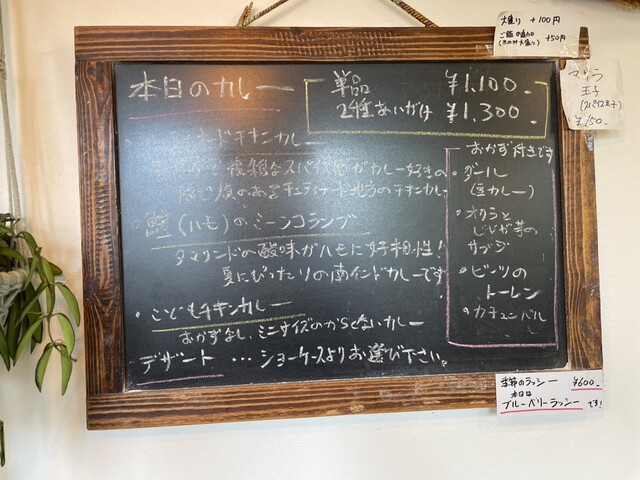 本日のカレー
単品 ¥1.100-
2種あいがけ ¥1.300-
大盛り +100円
ご飯 +50円
マサラ
玉子
¥150-
ドチキンカレー
複雑なスパイス感がカレー好きの
チェティナード地方のチキンカレー
・鱧(ハモ)のミーンコランブ
タマリンドの酸味がハモに好相性!
夏にぴったりの南インドカレーです
・こどもチキンカレー
おかずなし、ミニサイズのからくないカレー
デザート … ショーケースよりお選び下さい。
おかず付きです
・ダール
(豆カレー)
・オクラと
じゃが芋の
サブジ
・ビーツの
トーレン
・カチュンバル
季節のラッシー ¥600-
本日は
ブルーベリーラッシー です!